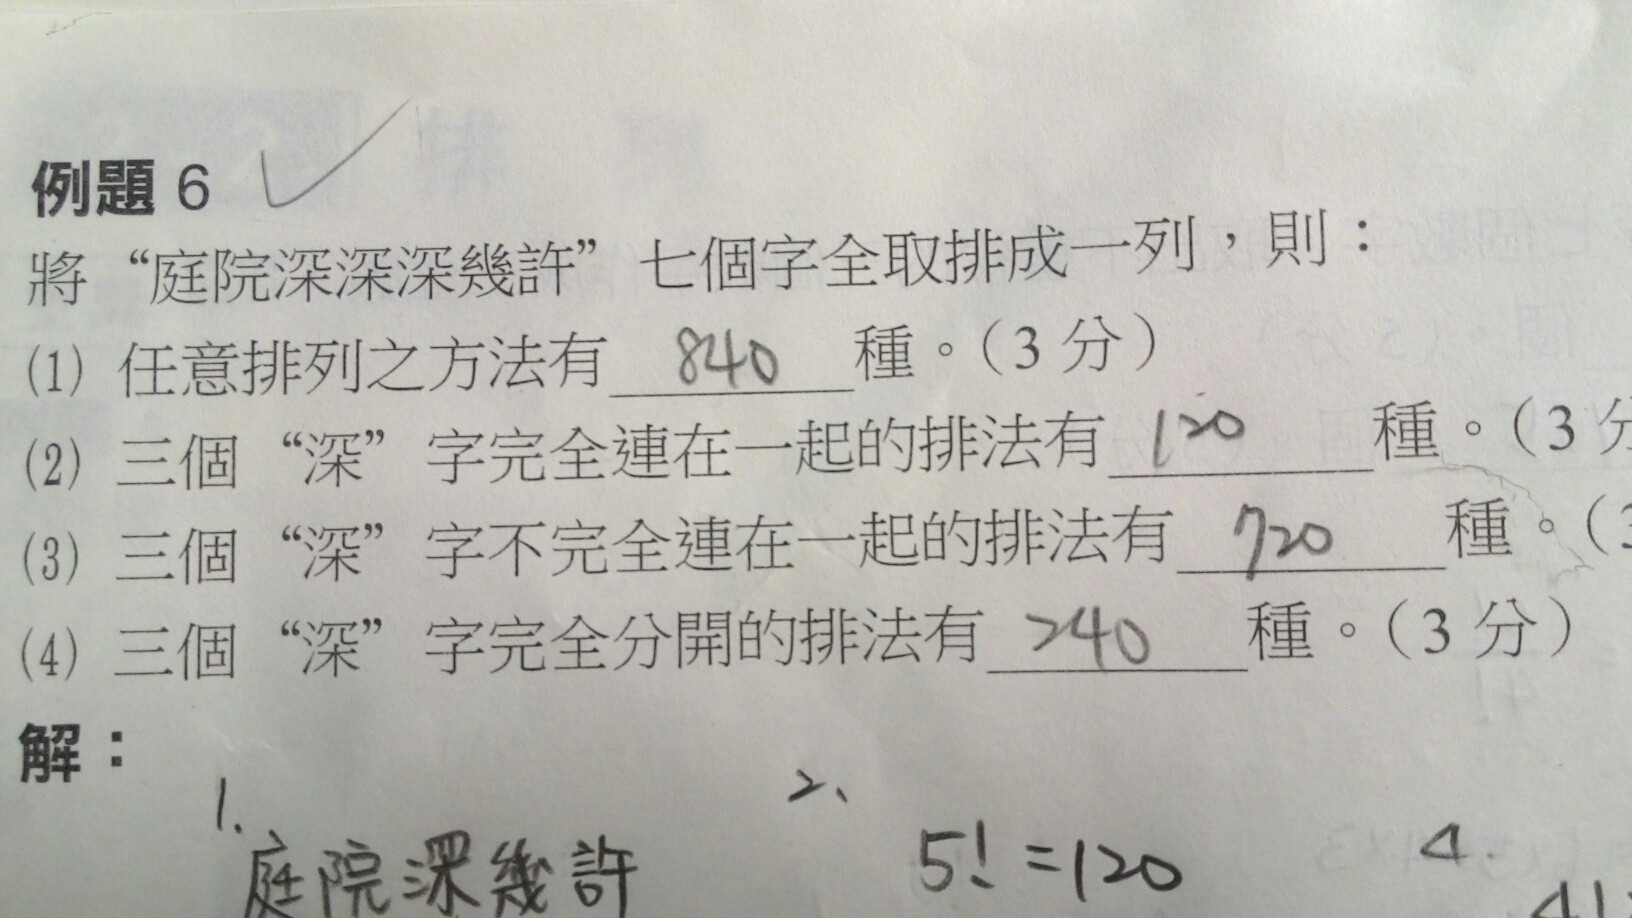 例題 6
將“庭院深深深幾許”七個字全取排成一列，則：
(1) 任意排列之方法有 840 種。（3 分）
(2) 三個“深”字完全連在一起的排法有 120 種。（3 分
(3) 三個“深”字不完全連在一起的排法有 720 種。（3
(4) 三個“深”字完全分開的排法有 240 種。（3 分）
解：
1. 庭院深幾許
2、 5! = 120
4. 4!